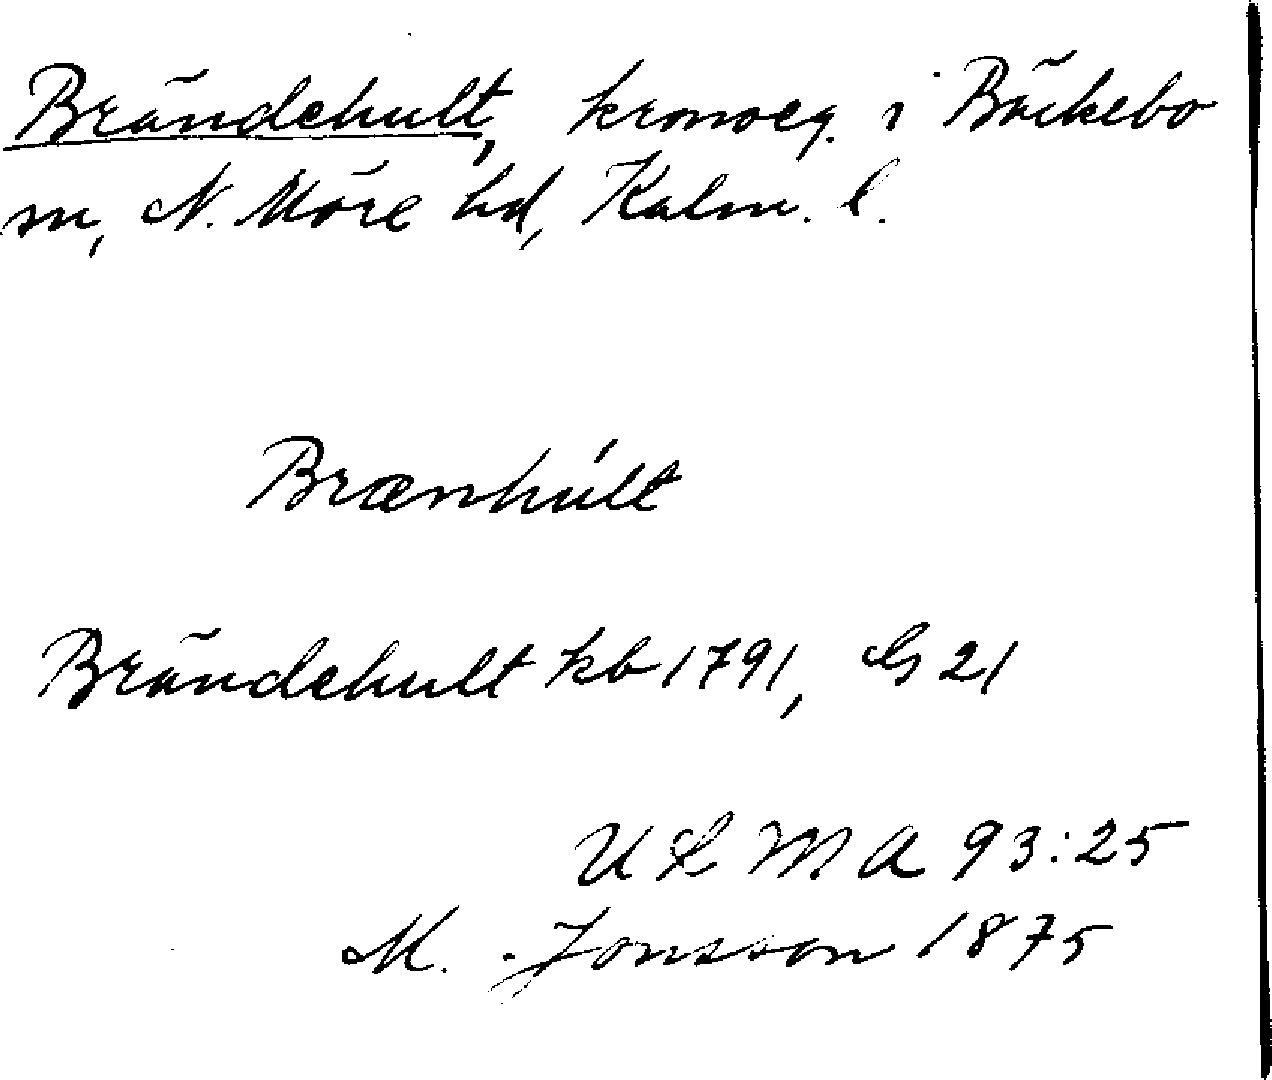 Brändehult, kronoeg. i Bäckebo
sn, N. Möre hd, Kalm. l.
Brænhúlt
Brändehult kb 1791, G 21
ULMA 93:25
M. Jonsson 1875